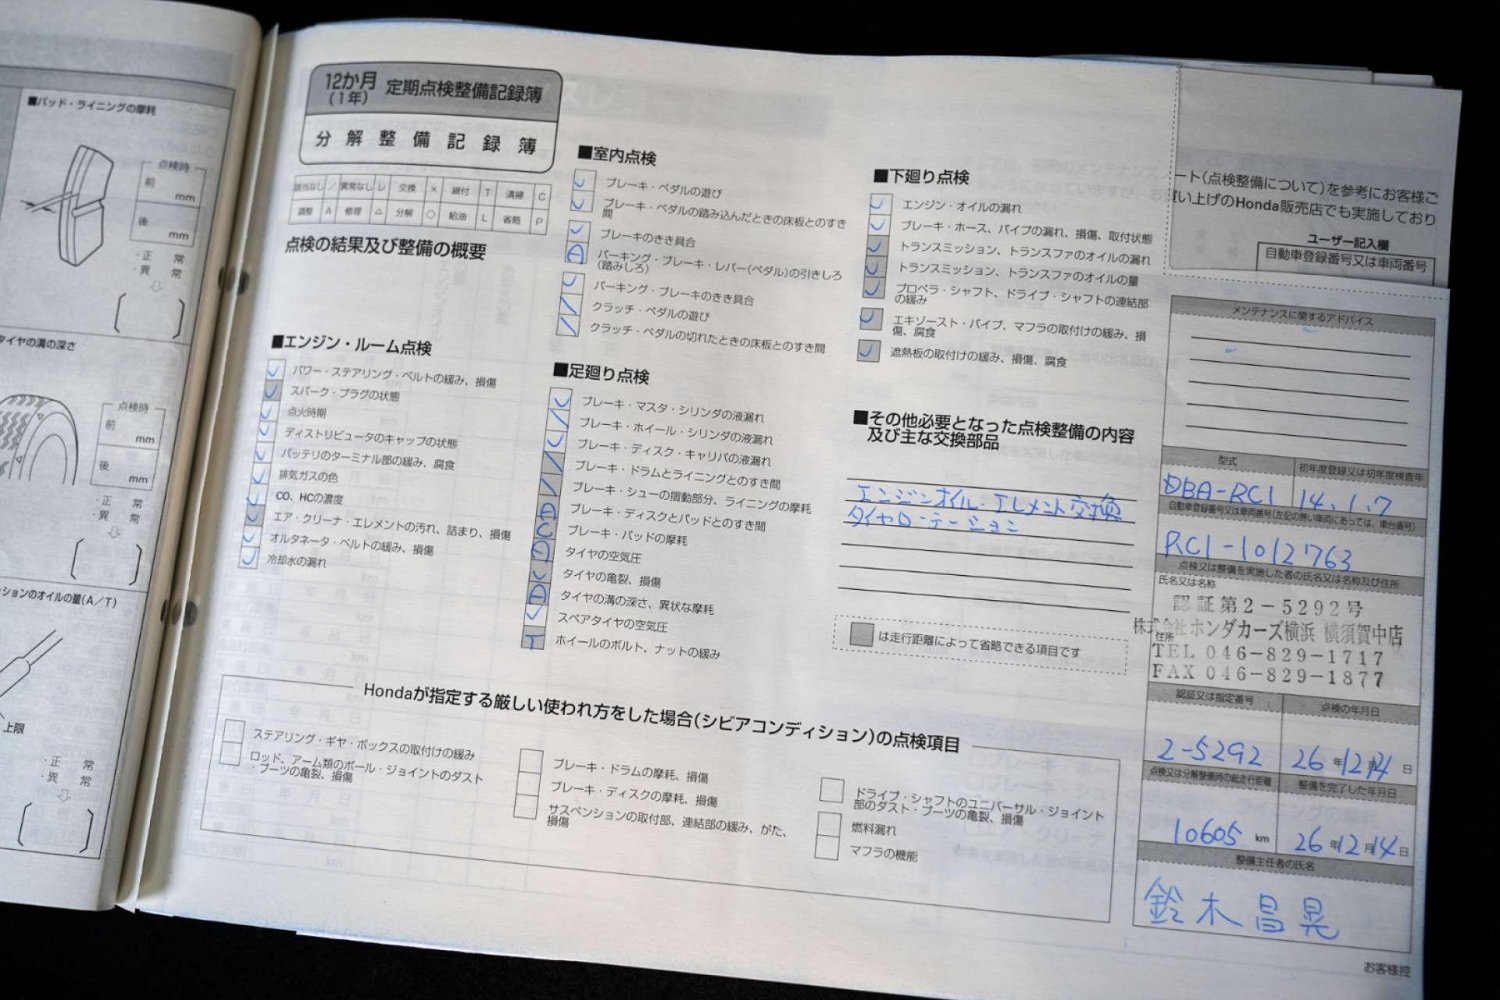 ■パッド・ライニングの摩耗
点検時
前
mm
後
mm
・正 常
・異 常
タイヤの溝の深さ
点検時
前
mm
後
mm
・正 常
・異 常
ションのオイルの量(A/T)
上限
・正 常
・異 常
12か月
(1年)
定期点検整備記録簿
分解整備記録簿
該当なし / 異常なし レ 交換 × 締付 T 清掃 C
調整 A 修理 △ 分解 ○ 給油 L 省略 P
点検の結果及び整備の概要
■エンジン・ルーム点検
パワー・ステアリング・ベルトの緩み、損傷
スパーク・プラグの状態
点火時期
ディストリビュータのキャップの状態
バッテリのターミナル部の緩み、腐食
排気ガスの色
CO、HCの濃度
エア・クリーナ・エレメントの汚れ、詰まり、損傷
オルタネータ・ベルトの緩み、損傷
冷却水の漏れ
■室内点検
ブレーキ・ペダルの遊び
ブレーキ・ペダルの踏み込んだときの床板とのすき
間
ブレーキのきき具合
パーキング・ブレーキ・レバー(ペダル)の引きしろ
(踏みしろ)
パーキング・ブレーキのきき具合
クラッチ・ペダルの遊び
クラッチ・ペダルの切れたときの床板とのすき間
■足廻り点検
ブレーキ・マスタ・シリンダの液漏れ
ブレーキ・ホイール・シリンダの液漏れ
ブレーキ・ディスク・キャリパの液漏れ
ブレーキ・ドラムとライニングとのすき間
ブレーキ・シューの摺動部分、ライニングの摩耗
ブレーキ・ディスクとパッドとのすき間
ブレーキ・パッドの摩耗
タイヤの空気圧
タイヤの亀裂、損傷
タイヤの溝の深さ、異状な摩耗
スペアタイヤの空気圧
ホイールのボルト、ナットの緩み
■下廻り点検
エンジン・オイルの漏れ
ブレーキ・ホース、パイプの漏れ、損傷、取付状態
トランスミッション、トランスファのオイルの漏れ
トランスミッション、トランスファのオイルの量
プロペラ・シャフト、ドライブ・シャフトの連結部
の緩み
エキゾースト・パイプ、マフラの取付けの緩み、損
傷、腐食
遮熱板の取付けの緩み、損傷、腐食
■その他必要となった点検整備の内容
及び主な交換部品
エンジンオイル・エレメント交換
タイヤローテーション
は走行距離によって省略できる項目です
Hondaが指定する厳しい使われ方をした場合(シビアコンディション)の点検項目
ステアリング・ギヤ・ボックスの取付けの緩み
ロッド、アーム類のボール・ジョイントのダスト
・ブーツの亀裂、損傷
ブレーキ・ドラムの摩耗、損傷
ブレーキ・ディスクの摩耗、損傷
サスペンションの取付部、連結部の緩み、がた、
損傷
ドライブ・シャフトのユニバーサル・ジョイント
部のダスト・ブーツの亀裂、損傷
燃料漏れ
マフラの機能
ート(点検整備について)を参考にお客様ご
い上げのHonda販売店でも実施しており
ユーザー記入欄
自動車登録番号又は車両番号
メンテナンスに関するアドバイス
型式
初年度登録又は初年度検査年
DBA-RC1
14.1.7
自動車登録番号又は車両番号(左記の無い車両にあっては、車台番号)
RC1-1012763
点検又は整備を実施した者の氏名又は名称及び住所
氏名又は名称
認証第2-5292号
株式会社ホンダカーズ横浜 横須賀中店
住所
TEL 046-829-1717
FAX 046-829-1877
認証又は指定番号
点検の年月日
2-5292
26年12月14日
点検又は分解整備時の総走行距離
整備を完了した年月日
10605 km
26年12月14日
整備主任者の氏名
鈴木昌晃
お客様控